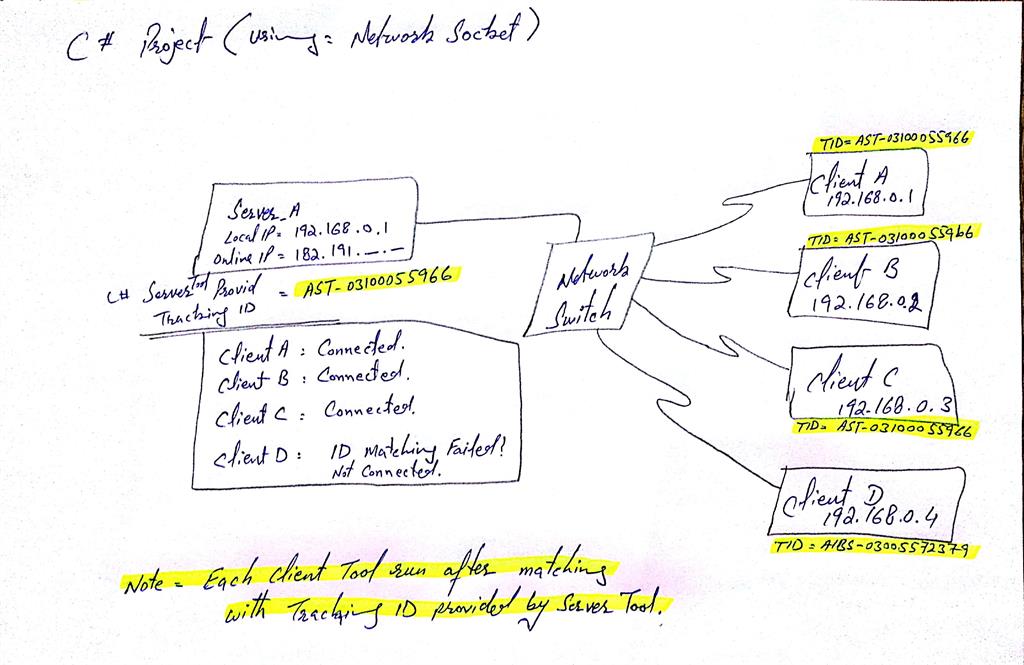 C# Project (using = Network Socket)
Server_A
Local IP = 192.168.0.1
Online IP = 182.191.--.-
C# Server Tool Provid = AST-03100055966
Tracking ID
Client A : Connected.
Client B : Connected.
Client C : Connected.
Client D : ID Matching Failed!
Not Connected.
Network
Switch
TID= AST-03100055966
Client A
192.168.0.1
TID= AST-03100055966
Client B
192.168.0.2
Client C
192.168.0.3
TID= AST-03100055966
Client D
192.168.0.4
TID = AIBS-03005572379
Note = Each Client Tool run after matching
with Tracking ID provided by Server Tool.